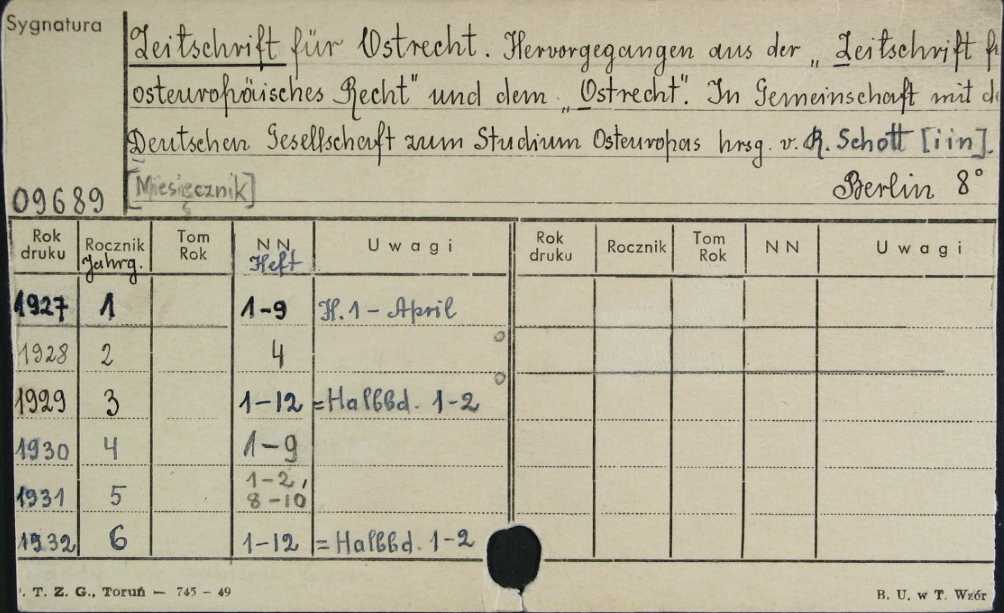 Sygnatura
Zeitschrift für Ostrecht. Hervorgegangen aus der „Zeitschrift f
osteuropäisches Recht" und dem „Ostrecht". In Gemeinschaft mit d
Deutschen Gesellschaft zum Studium Osteuropas hrsg. v. R. Schott [i in].
[Miesięcznik] Berlin 8°
09689
Rok druku Rocznik Jahrg. Tom Rok NN Heft Uwagi Rok druku Rocznik Tom Rok NN Uwagi
1927 1 1-9 H. 1 - April
1928 2 4
1929 3 1-12 = Halbbd. 1-2
1930 4 1-9
1931 5 1-2, 8-10
1932 6 1-12 = Halbbd. 1-2
. T. Z. G., Toruń — 745 - 49 B. U. w T. Wzór